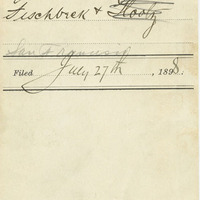 Fischbeck & Klootz
San Francisco
Filed July 27th, 1898.